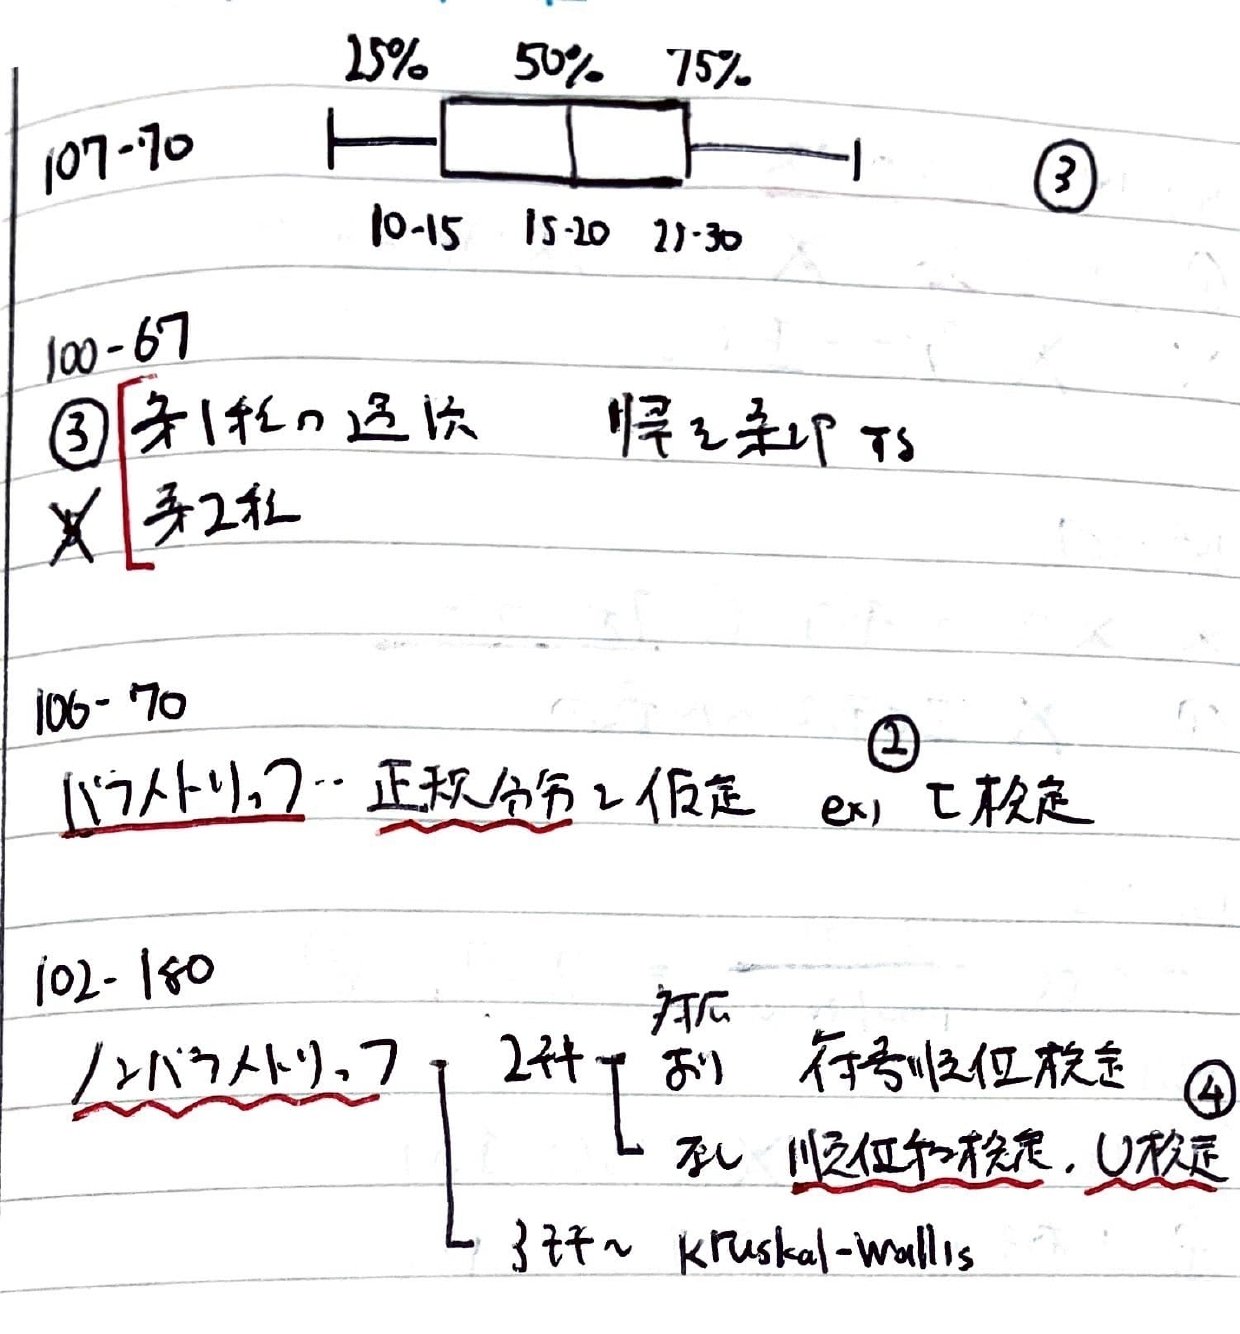 25% 50% 75%
107-70 ③
10-15 15-20 21-30
100-67
③ 第1種の過誤 帰を棄却する
第2種
106-70
パラメトリック‥正規分布を仮定 ex) ② t検定
102-180
対応
ノンパラメトリック 2群 あり 符号順位検定
なし 順位和検定, U検定 ④
3群~ Kruskal-Wallis